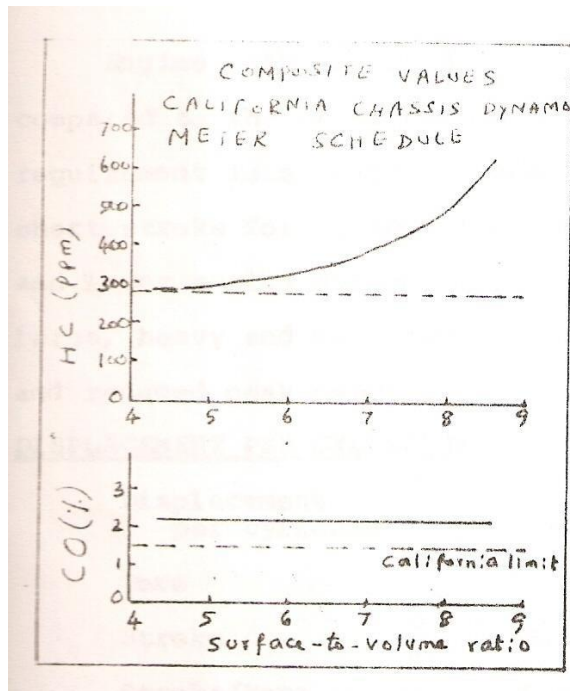 COMPOSITE VALUES
CALIFORNIA CHASSIS DYNAMO
METER SCHEDULE
HC (PPM)
700
600
500
400
300
200
100
0
4 5 6 7 8 9
CO (%)
3
2
1
0
California limit
4 5 6 7 8 9
surface-to-volume ratio